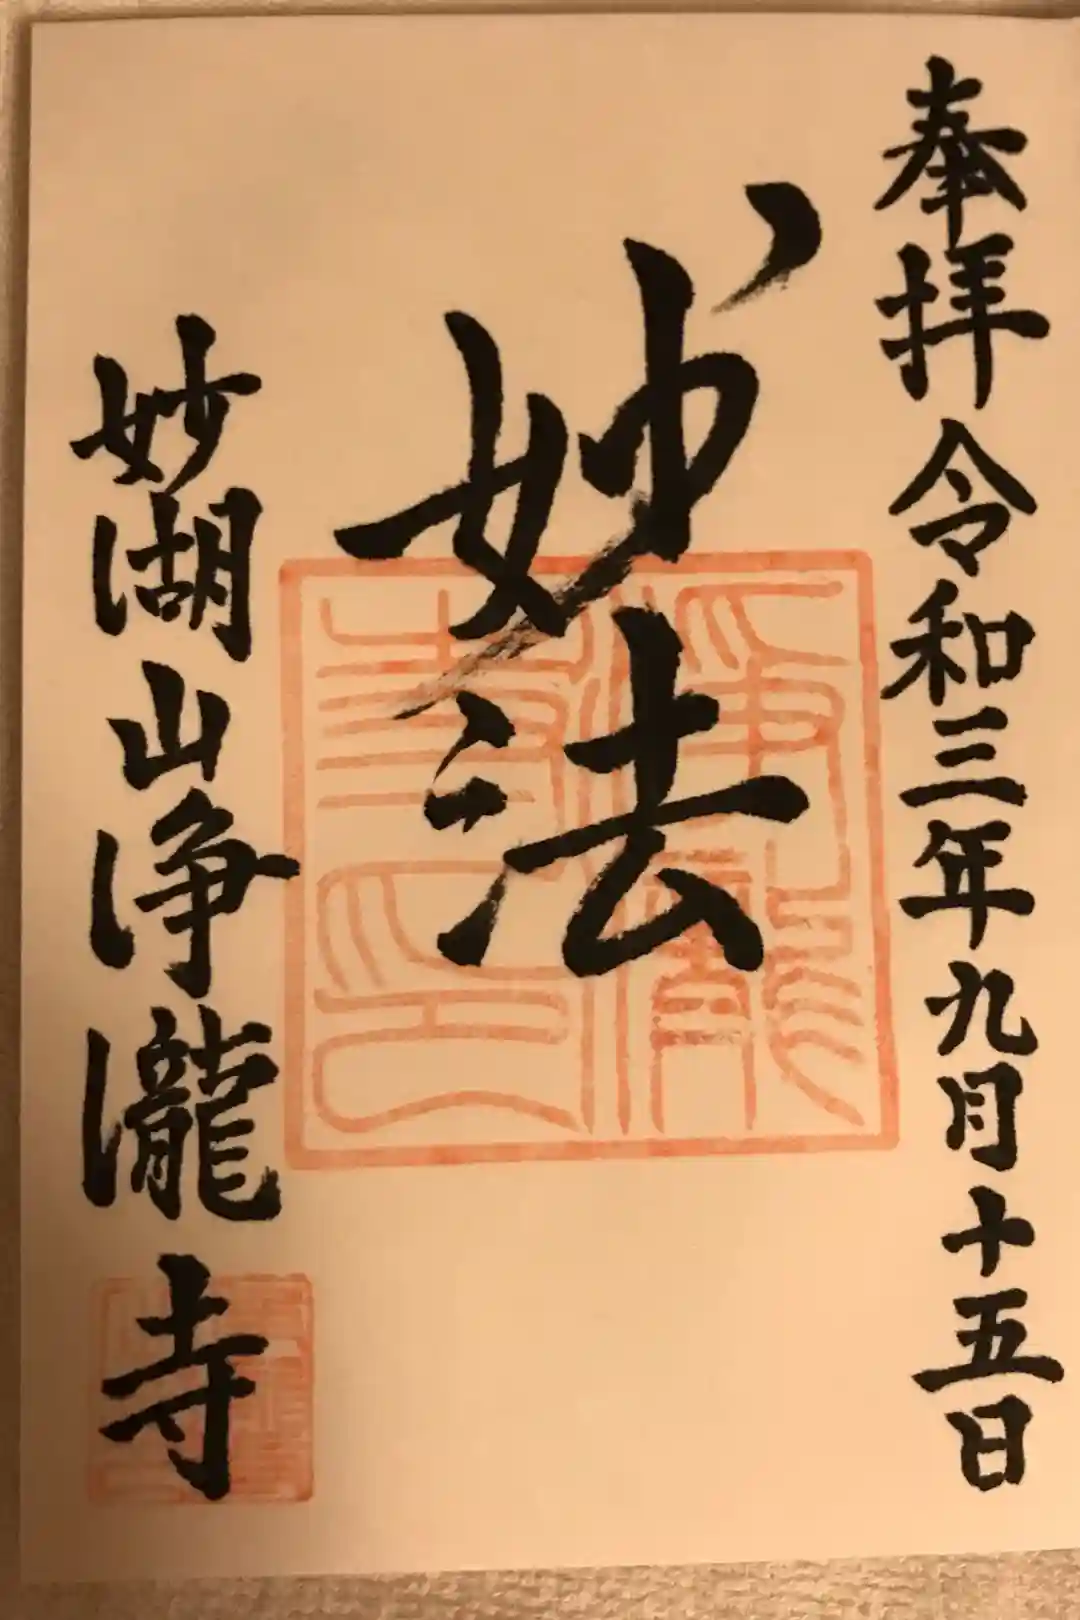 奉拝 令和三年九月十五日
妙法
妙湖山浄瀧寺
浄瀧寺印